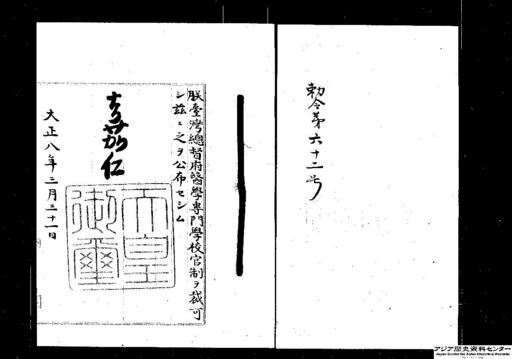 勅令第六十二号
朕臺灣總督府醫學專門學校官制ヲ裁可
シ茲ニ之ヲ公布セシム
嘉仁
天皇
御璽
大正八年三月三十一日
アジア歴史資料センター
Japan Center for Asian Historical Records